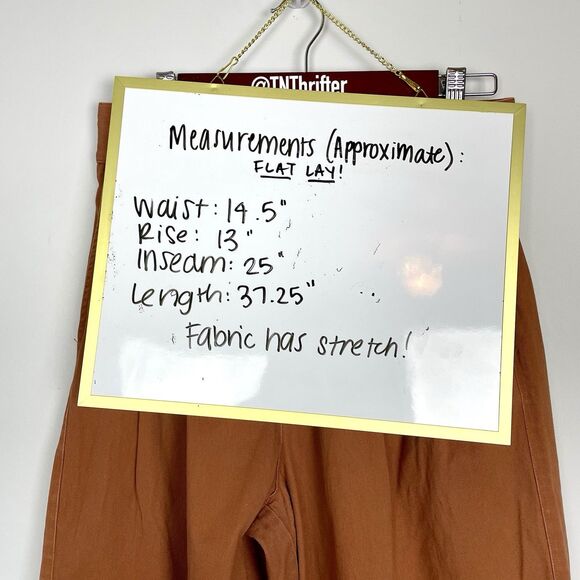 @TNThrifter
Measurements (Approximate):
FLAT LAY!
Waist: 14.5"
Rise: 13"
Inseam: 25"
Length: 37.25"
Fabric has stretch!